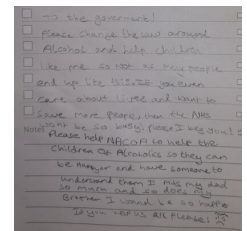 To the government!
Please change the law around
Alcohol and help children
like me so not as many people
end up like this. If you even
care about lives and want to
save more people then the NHS
wont be so busy! please I beg you!
Notes
Please help NACOA to help the
Children Of Alcoholics so they can
be Happyer and have someone to
understand them I miss my dad
so much and so does my
Brother I would be so happy
If you help us all Please!